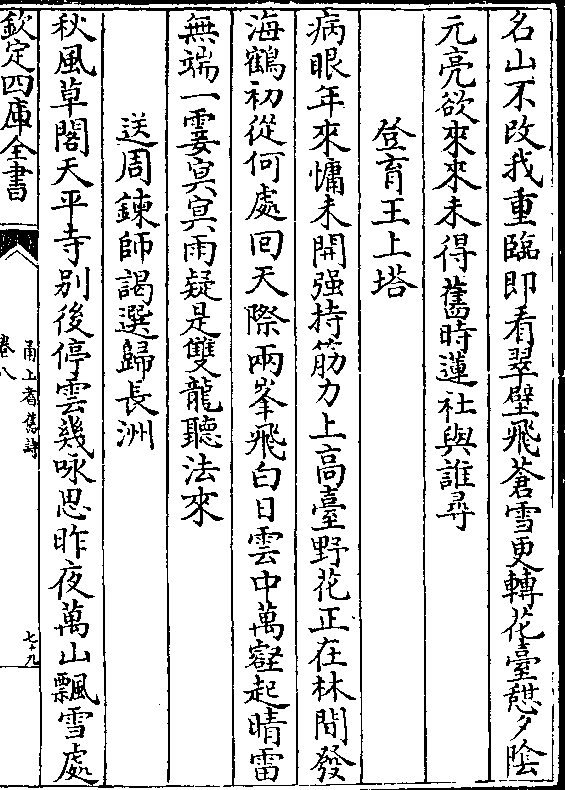 名山不改我重臨即看翠壁飛蒼雪更轉花臺憇夕陰
元亮欲來來未得舊時蓮社與誰尋
登育王上塔
病眼年來慵未開强持筋力上高臺野花正在林間發
海鶴初從何處回天際兩峯飛白日雲中萬壑起晴雷
無端一霎冥冥雨疑是雙龍聽法來
送周鍊師謁選歸長洲
秋風草閣天平寺别後停雲幾咏思昨夜萬山飄雪處
欽定四庫全書
甬上耆舊詩
卷八
七十九